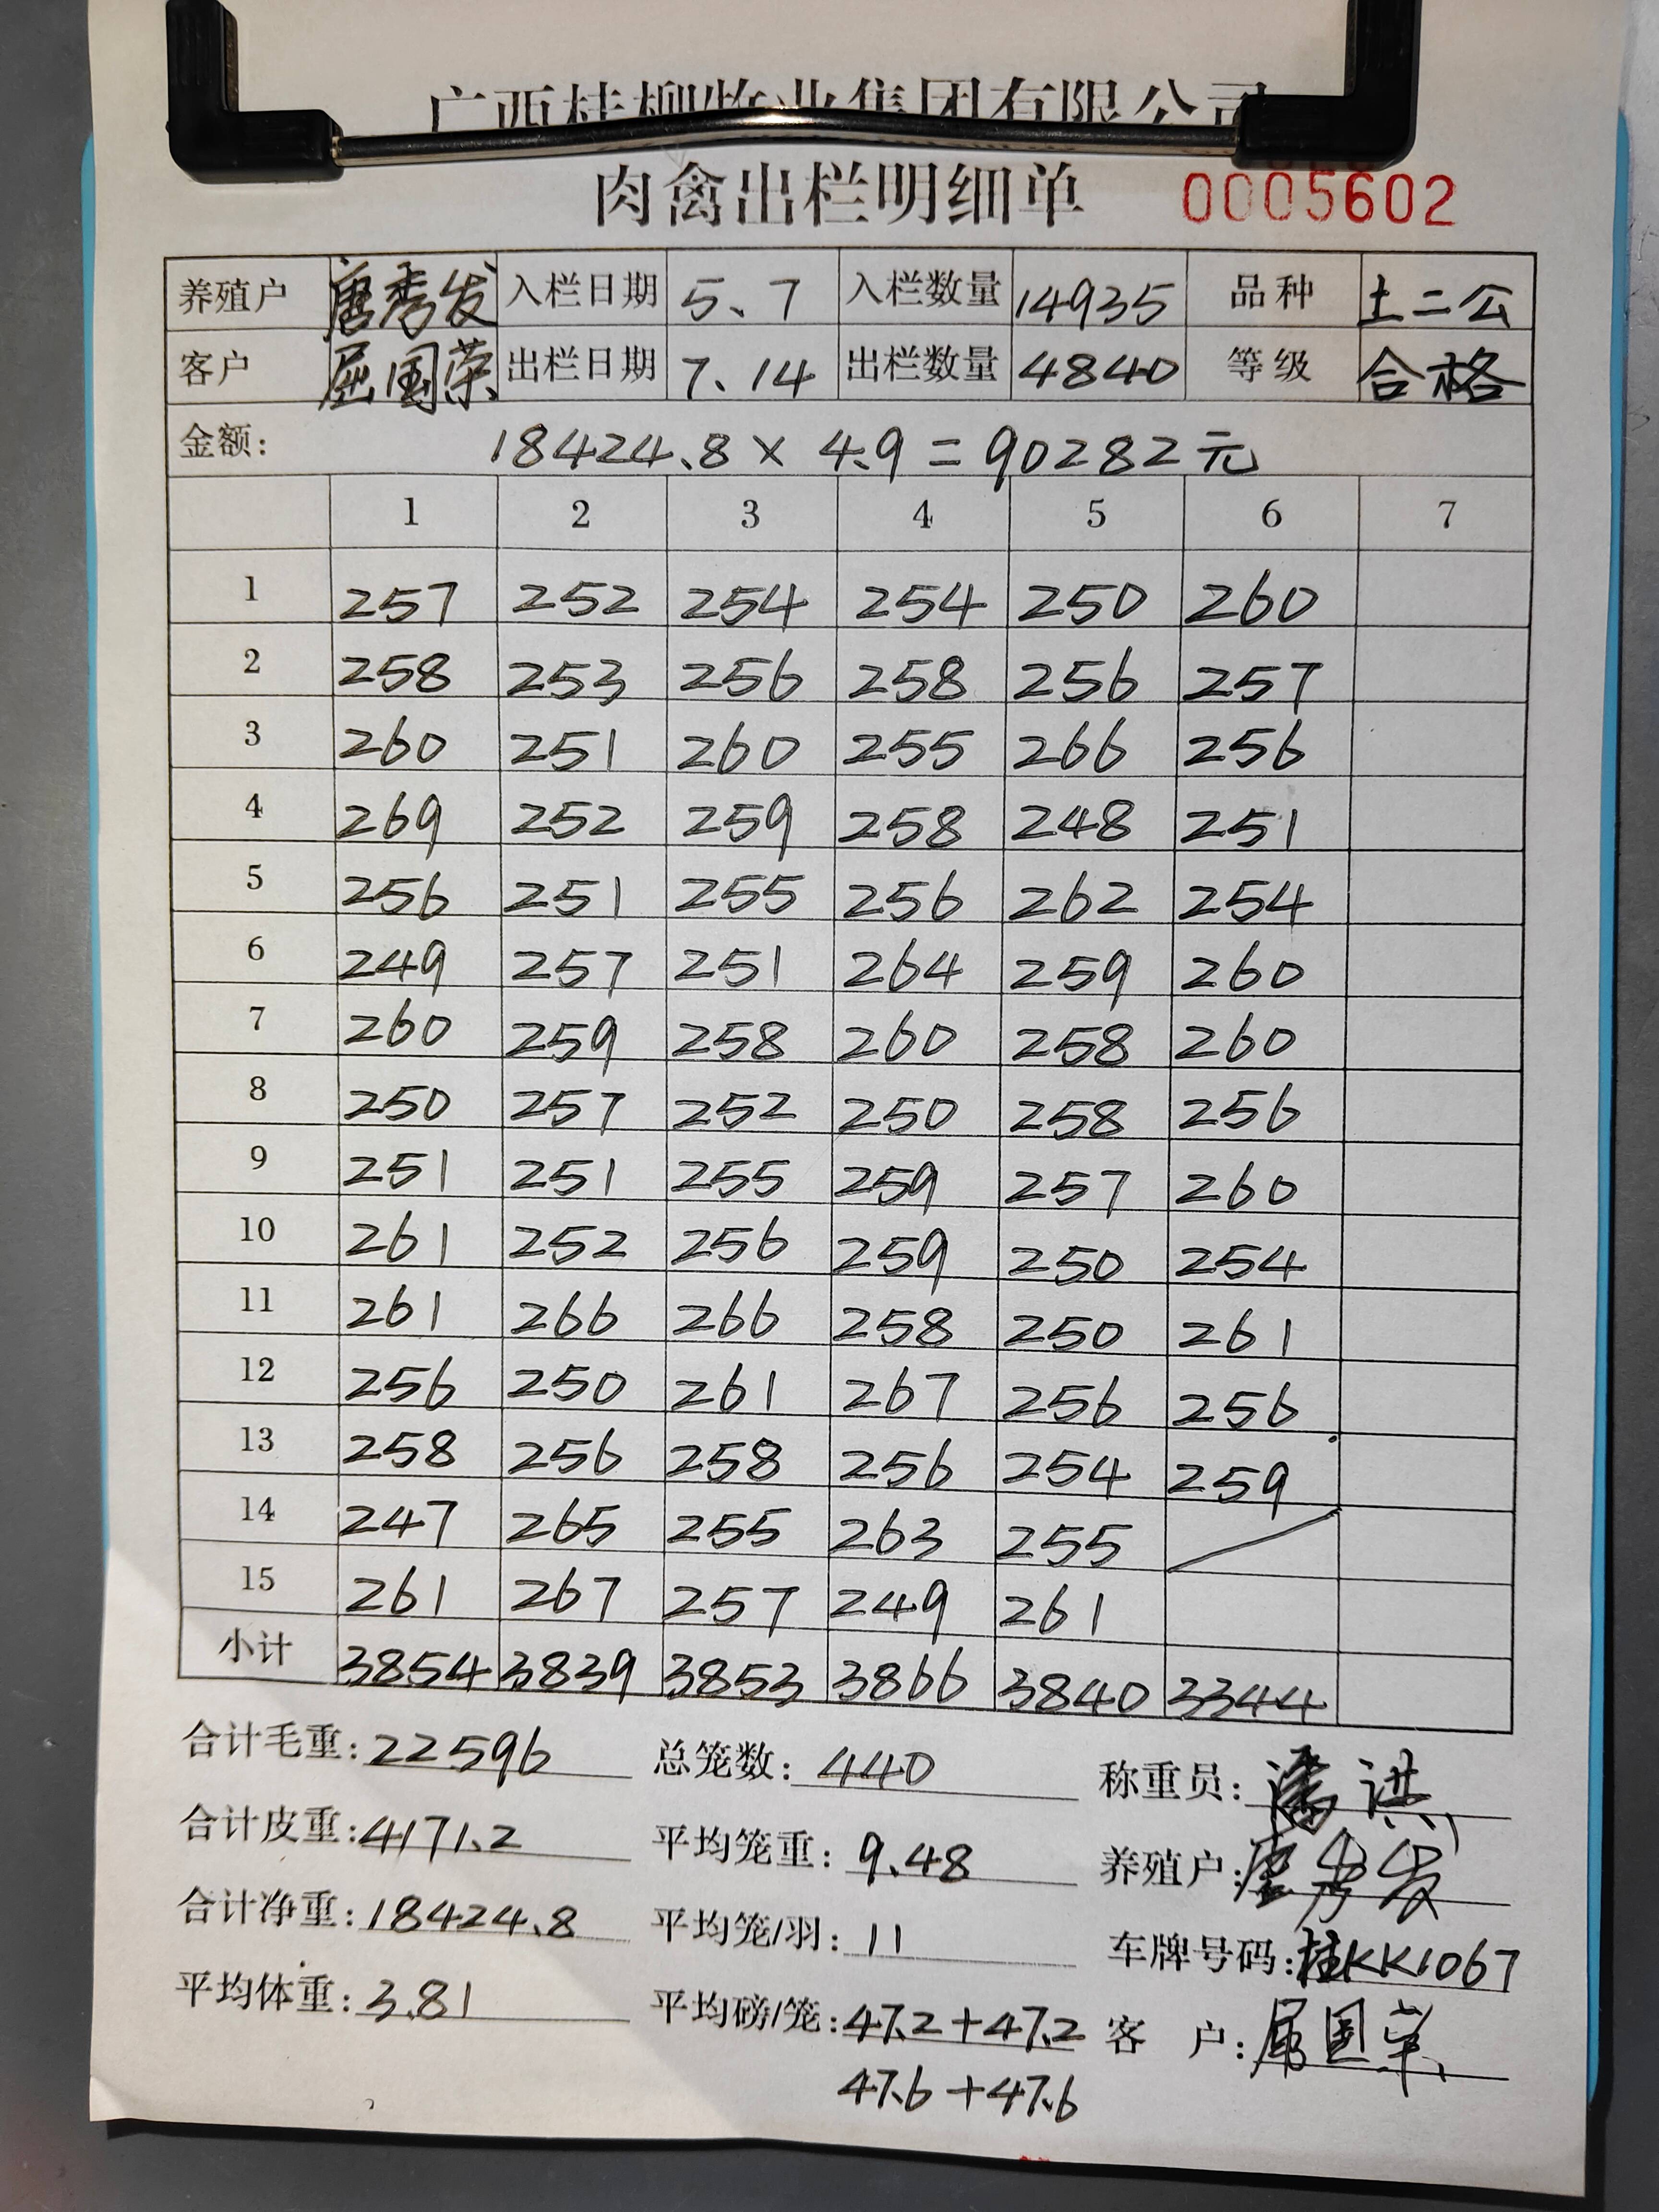 广西桂柳牧业集团有限公司
肉禽出栏明细单 0005602
养殖户 唐秀发 入栏日期 5、7 入栏数量 14935 品种 土二公
客户 屈国荣 出栏日期 7、14 出栏数量 4840 等级 合格
金额: 18424.8 × 4.9 = 90282元
1 2 3 4 5 6 7
1 257 252 254 254 250 260
2 258 253 256 258 256 257
3 260 251 260 255 266 256
4 269 252 259 258 248 251
5 256 251 255 256 262 254
6 249 257 251 264 259 260
7 260 259 258 260 258 260
8 250 257 252 250 258 256
9 251 251 255 259 257 260
10 261 252 256 259 250 254
11 261 266 266 258 250 261
12 256 250 261 267 256 256
13 258 256 258 256 254 259
14 247 265 255 263 255
15 261 267 257 249 261
小计 3854 3839 3853 3866 3840 3344
合计毛重: 22596 总笼数: 440 称重员: 潘洪
合计皮重: 4171.2 平均笼重: 9.48 养殖户: 唐秀发
合计净重: 18424.8 平均笼/羽: 11 车牌号码: 桂KK1067
平均体重: 3.81 平均磅/笼: 47.2+47.2 客 户: 屈国荣
47.6+47.6